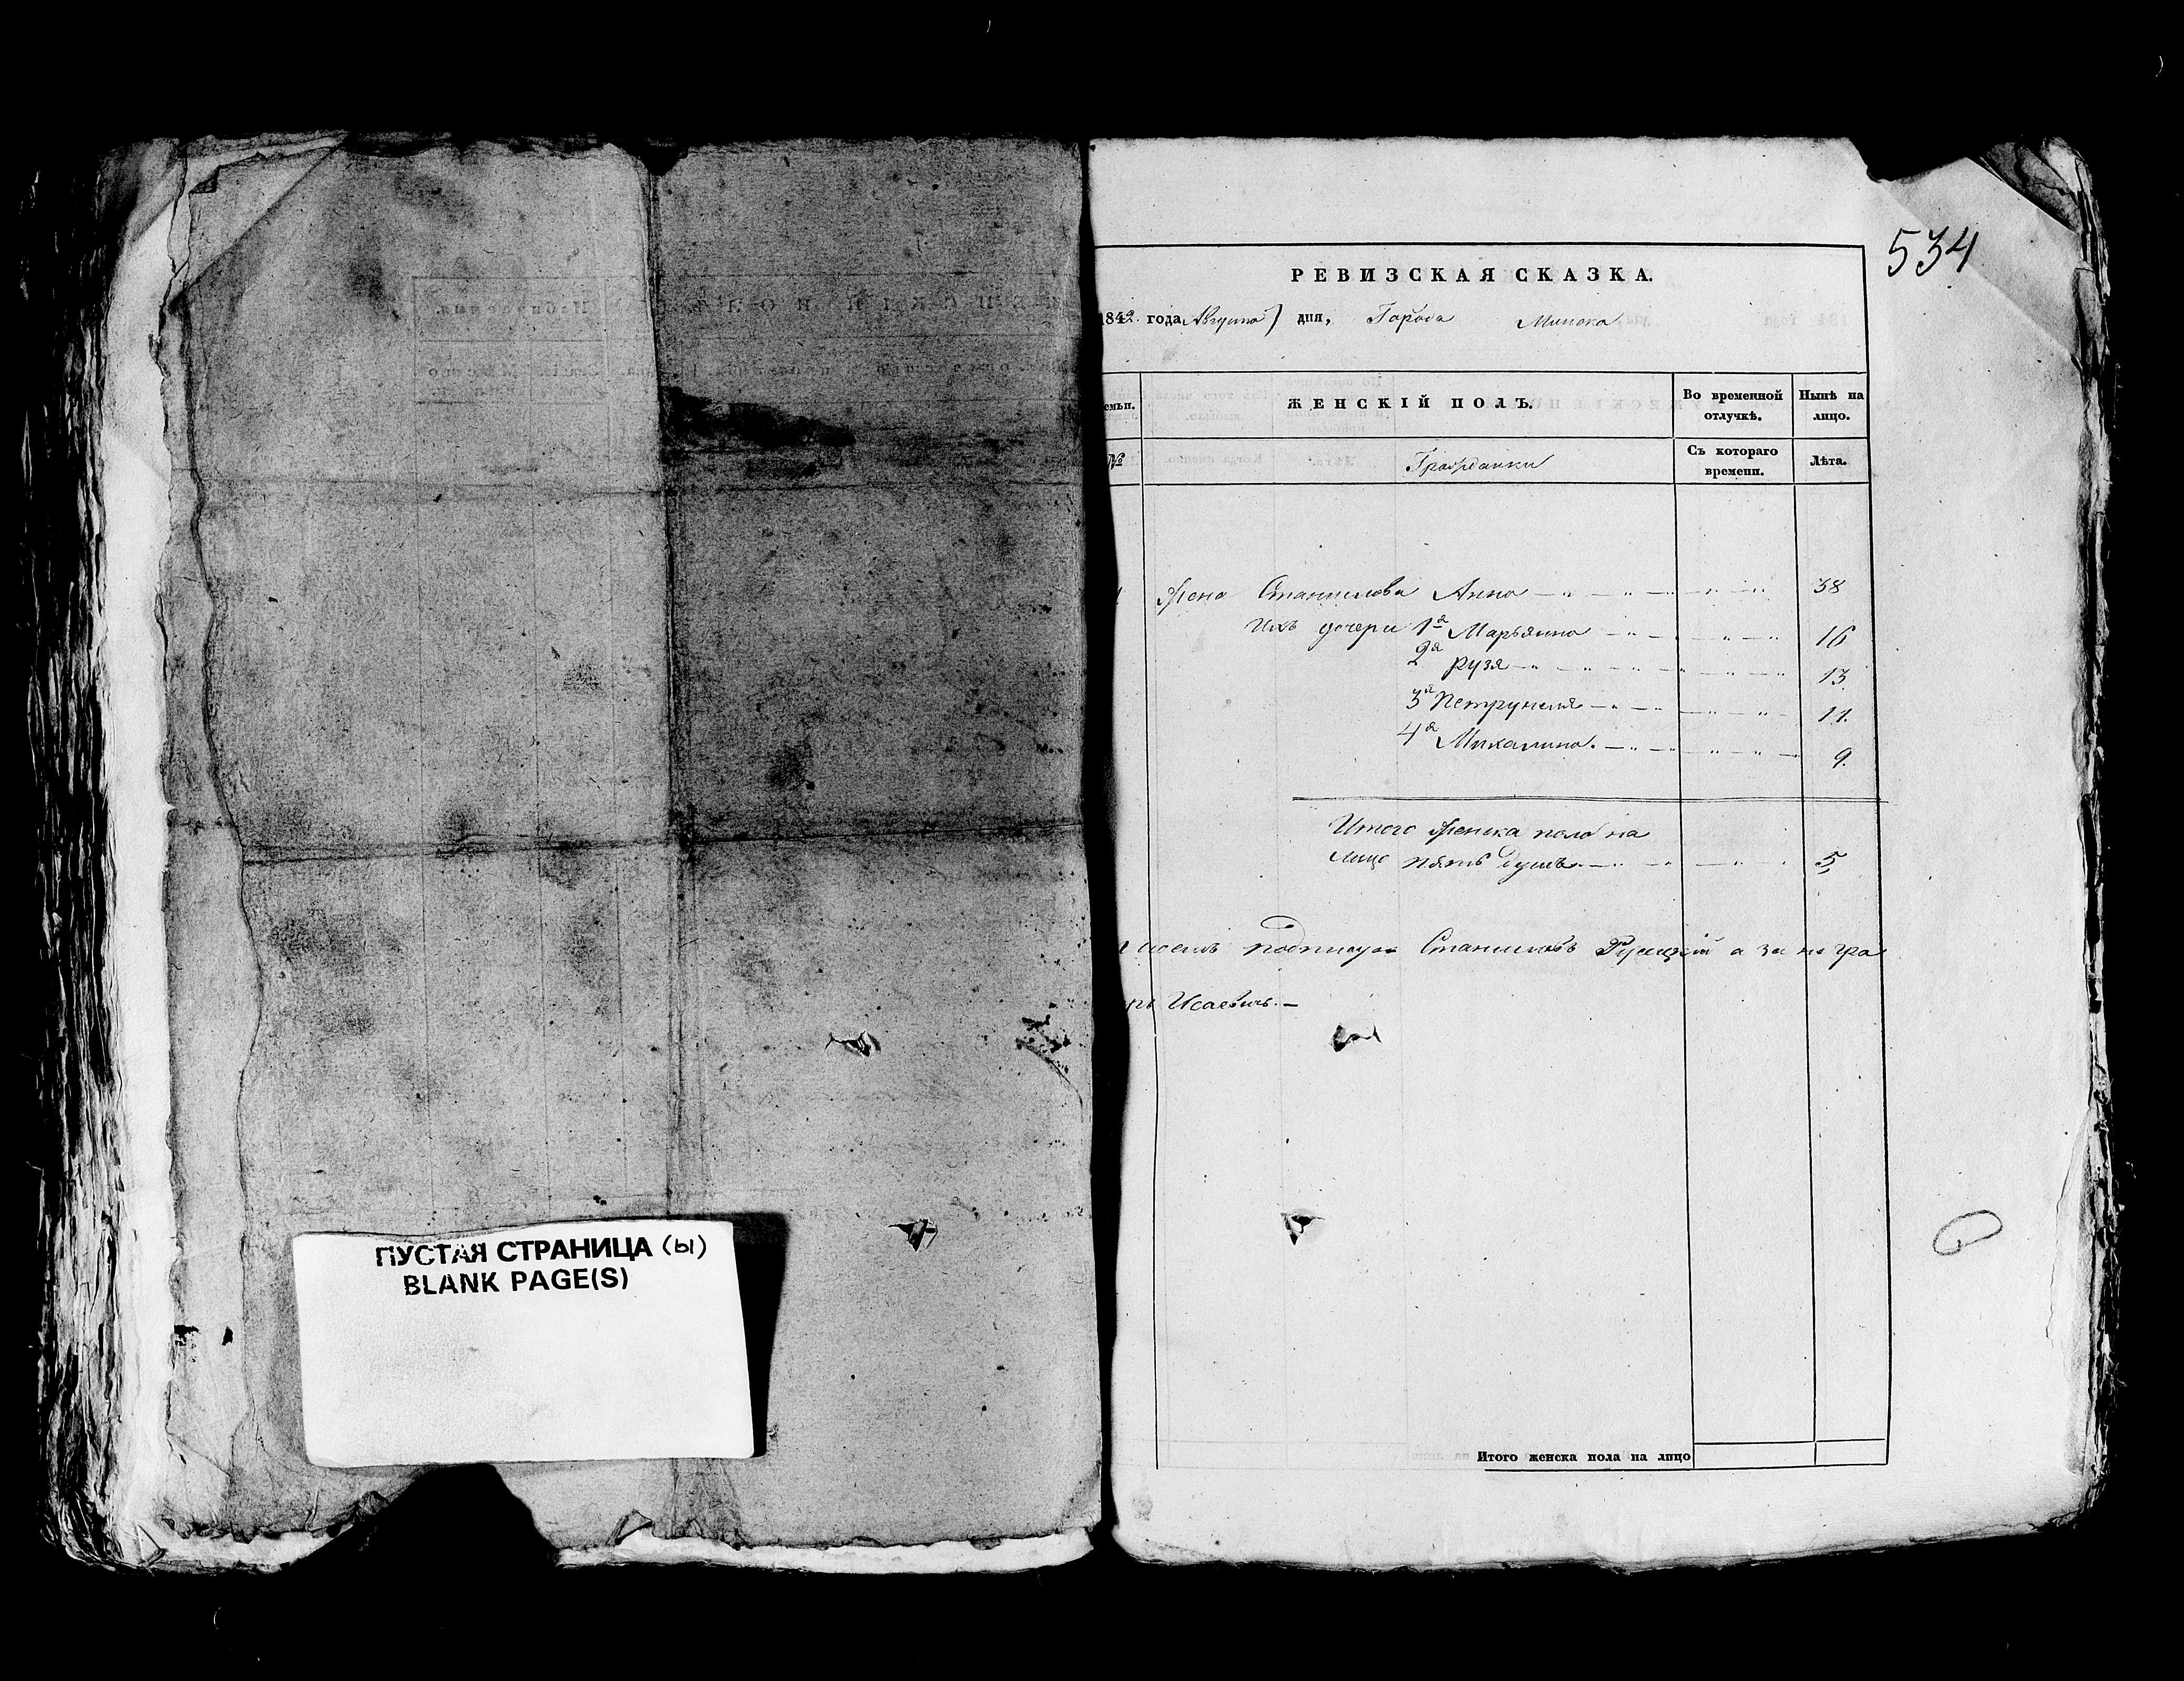 ПУСТАЯ СТРАНИЦА (ы)
BLANK PAGE(S)
534
РЕВИЗСКАЯ СКАЗКА.
1842. года, Августа дня, Города Минска
емьи. ЖЕНСКІЙ ПОЛЪ. Во временной отлучкѣ. Нынѣ на лицо.
№ Гражданки Съ котораго времени. Лѣта.
Жена Станислава Анна 38
Ихъ дочери 1я Марьянна 16
2я Рузя 13
3я Петрунеля 11.
4я Михалина. 9.
Итого женска пола на
лицо пять душъ. 5
подписуя Станиславъ а за не гра
Исаевичъ.
Итого женска пола на лицо